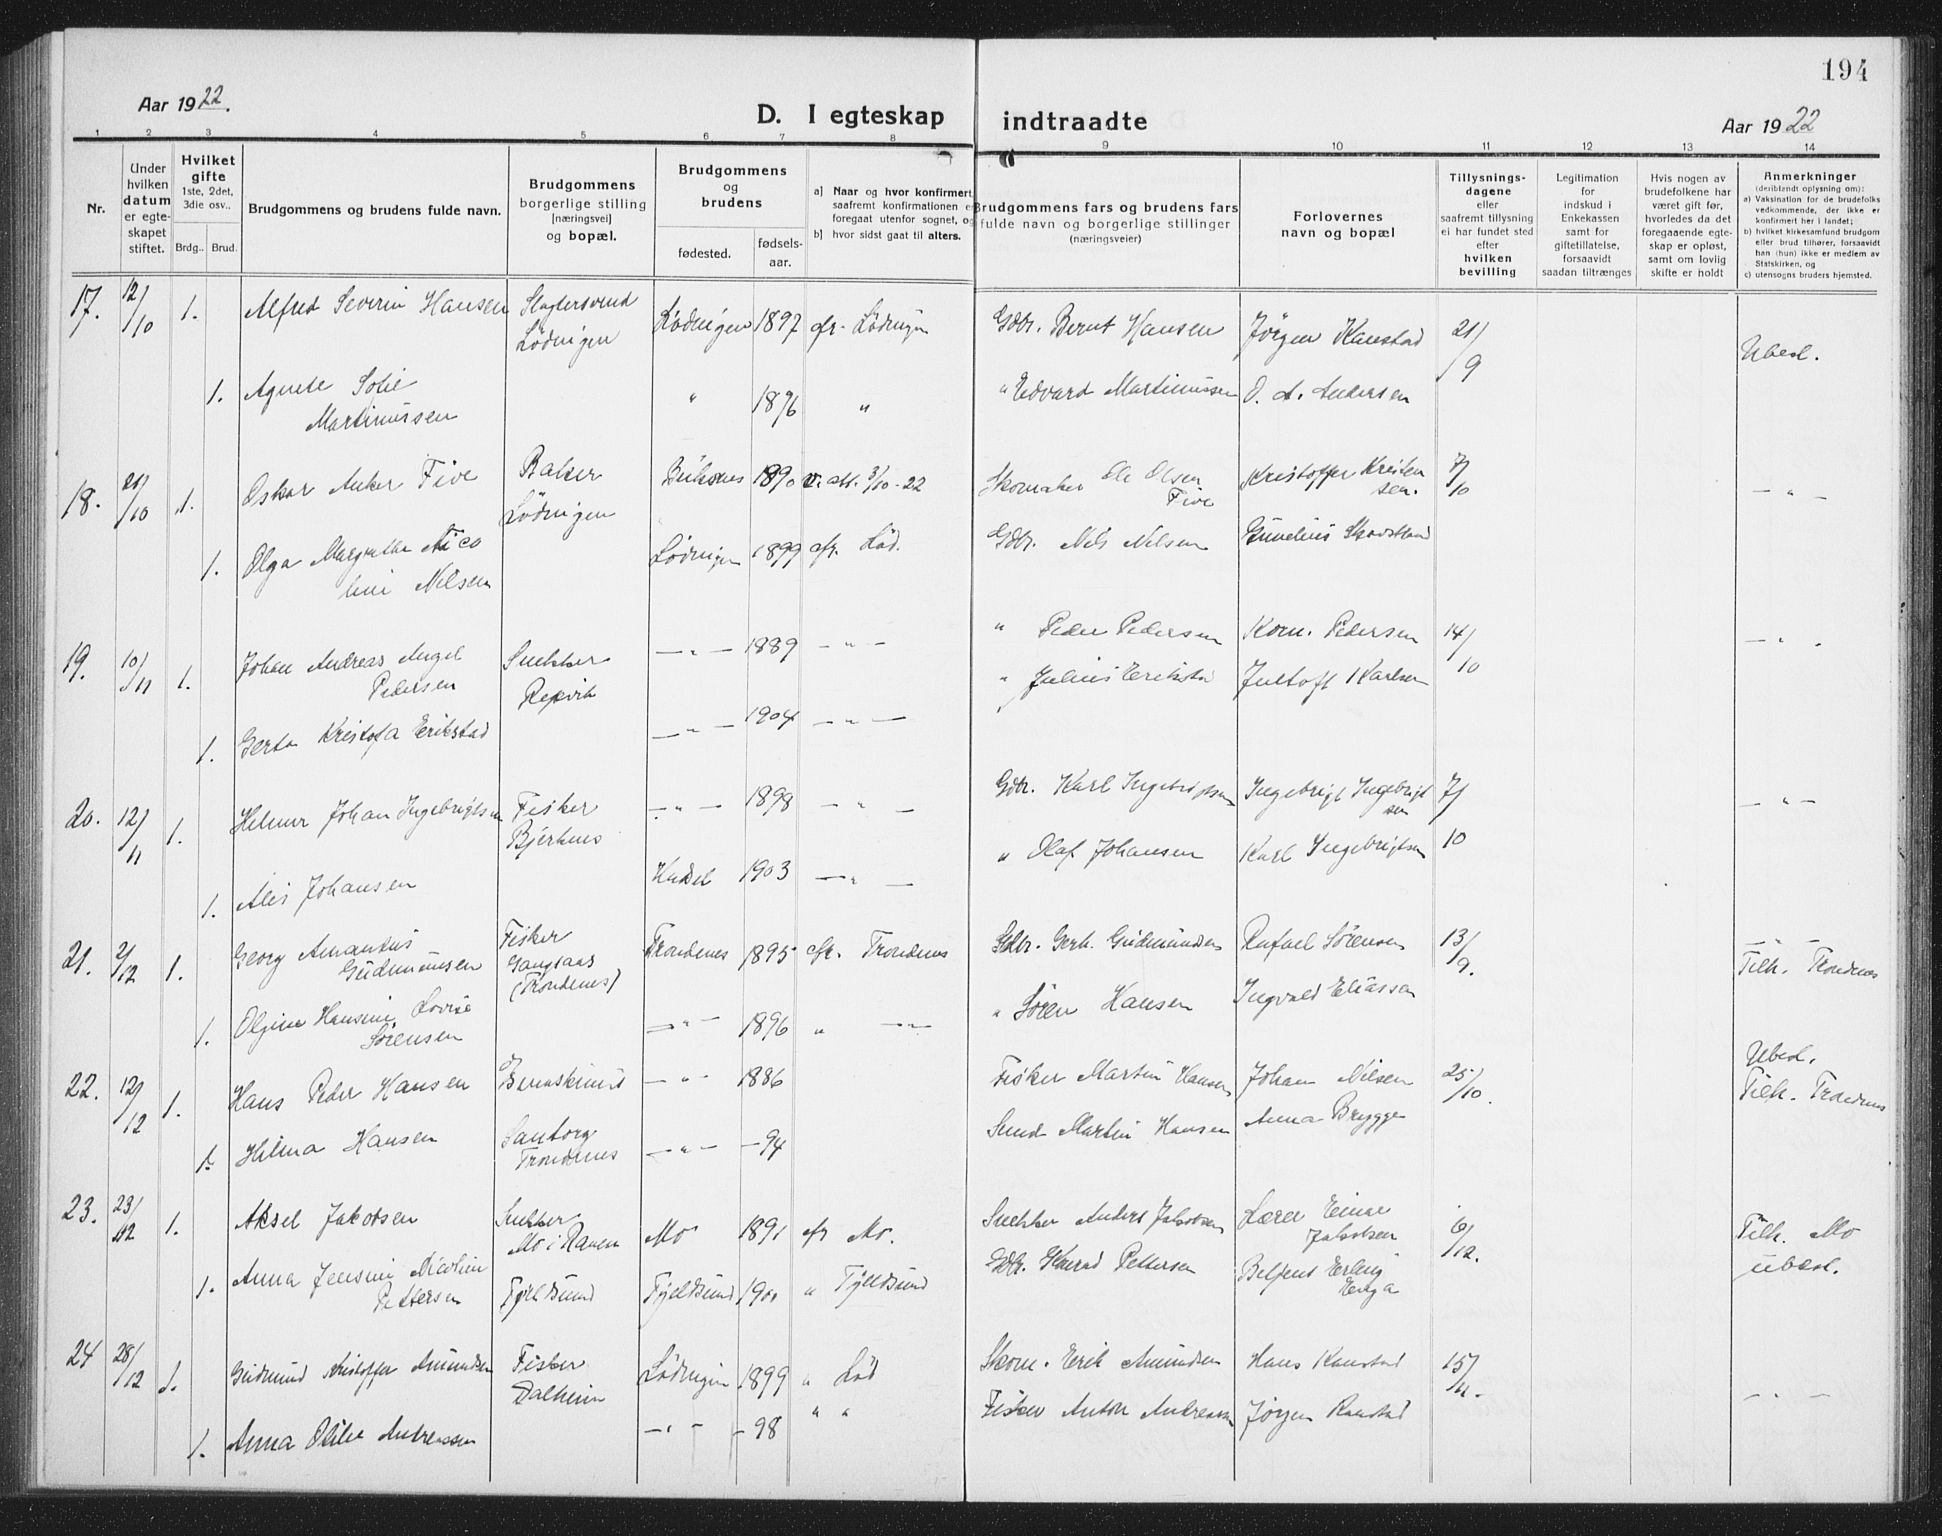 194
Aar 1922.
D. I egteskap indtraadte
Aar 1922
1 2 3 4 5 6 7 8 9 10 11 12 13 14
Nr.
Under hvilken datum er egte- skapet stiftet.
Hvilket gifte 1ste, 2det, 3die osv..
Brdg.. Brud.
Brudgommens og brudens fulde navn.
Brudgommens borgerlige stilling [næringsvei] og bopæl.
Brudgommens og brudens
fødested.
fødsels- aar.
a] Naar og hvor konfirmert, saafremt konfirmationen er foregaat utenfor sognet, og
b] hvor sidst gaat til alters.
Brudgommens fars og brudens fars fulde navn og borgerlige stillinger (næringsveier)
Forlovernes navn og bopæl
Tillysnings- dagene eller saafremt tillysning ei har fundet sted efter hvilken bevilling
Legitimation for indskud i Enkekassen samt for giftetillatelse, forsaavidt saadan tiltrænges
Hvis nogen av brudefolkene har været gift før, hvorledes da det foregaaende egte- skap er opløst, samt om lovlig skifte er holdt
Anmerkninger
(deriblandt oplysning om):
a) Vaksination for de brudefolks vedkommende, der ikke er konfirmert her i landet;
b) hvilket kirkesamfund brudgom eller brud tilhører, forsaavidt han (hun) ikke er medlem av Statskirken, og
c) utensogns bruders hjemsted.
17. 12/10 1. Alfred Severin Hansen Slagtersvend Lødingen Lødingen 1897 gfr. Lødingen Gdbr. Bernt Hansen Jørgen Kanstad 21/9 Ubesl.
1. Agnete Sofie Martinussen " 1896 " " Edvard Martinussen O. A. Andersen
18. 21/10 1. Oskar Anker Five Baker Lødingen 1890 v. att. 3/10-22 Skomaker Ole Olsen Five Kristoffer Kristensen. 7/10 — " —
1. Olga Margrethe Nicoline Nilsen Lødingen 1899 gfr. Lød. Gdbr. Nils Nilsen
19. 10/11 1. Johan Andreas Angel Pedersen Snekker Repvik — " — 1889 — " — " Peder Pedersen Korn. Pedersen 14/10 — " .
1. Gerta Kristofa Erikstad — " — 1904 — " — " Julius Erikstad Jultoft Karlsen
20. 12/11 1. Hilmar Johan Ingebrigtsen Fisker Bjerknes — " — 1898 — " — Gdbr. Karl Ingebrigtsen Ingebrigt Ingebrigtsen 7/10 — " —
1. Alis Johansen Hadsel 1903 — " — " Olaf Johansen Karl Ingebrigtsen
21. 2/12 1. Georg Amandus Gudmundsen Fisker Gangsaas (Trondenes) Trondenes 1895 gfr. Trondenes Gdbr. Gerh. Gudmundsen Rafael Sörensen 13/9. — " — Tilh. Trondenes
1. Olgine Hansine Lovise Sörensen — " — 1896 " — " — " Sören Hansen Ingvald Eliassen
22. 12/12 1. Hans Peder Hansen — " — 1886 Fisker Martin Hansen Johan Nilsen 25/10. Ubesl. Tilh. Trondenes
1. Hilma Hansen Santorg Trondenes — " — — 94 Martin Hansen Anna Brygge
23. 23/12 1. Aksel Jakobsen Snekker Mo i Ranen Mo 1891 gfr Mo. Snekker Anders Jakobsen Lærer Einar Jakobsen 6/12. Tilh. Mo ubesl.
1. Anna Jensine Nicoline Pettersen Fjeldsund Fjeldsund 1900 " Fjeldsund Gdbr. Konrad Pettersen Erling Enga
24 28/12 1. Gudmund Kristoffer Amundsen Fisker Dalheim Lødingen 1899 " Lød Skom. Erik Amundsen Hans Kanstad 15/11. — " —
1. Anna Otilie Andreassen — " — — 98 " " Fisker Anton Andreassen Jørgen Kanstad